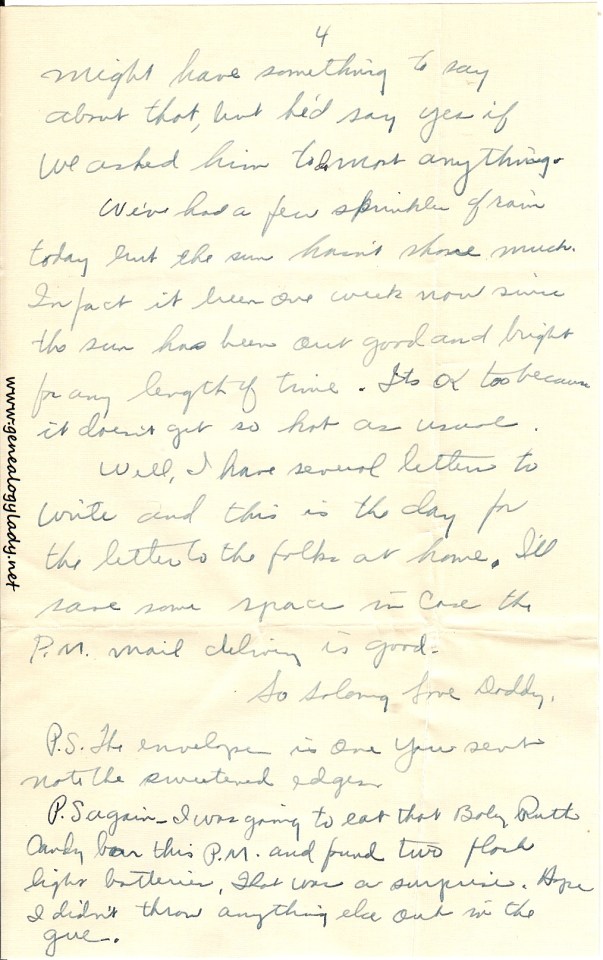 4
might have something to say
about that, but he'd say yes if
we asked him to do most anything.
We've had a few sprinkles of rain
today but the sun hasn't shone much.
In fact it been one week now since
the sun has been out good and bright
for any length of time. Its OK too because
it doesn't get so hot as usual.
Well, I have several letters to
write and this is the day for
the letter to the folks at home. I'll
save some space in case the
P.M. mail delivery is good.
So solong love Daddy.
P.S. The envelope is one you sent
note the sweetened edges.
P.S again - I was going to eat that Baby Ruth
Candy bar this P.M. and found two flash
light batteries, that was a surprise. Hope
I didn't throw anything else out in the
www.genealogylady.net